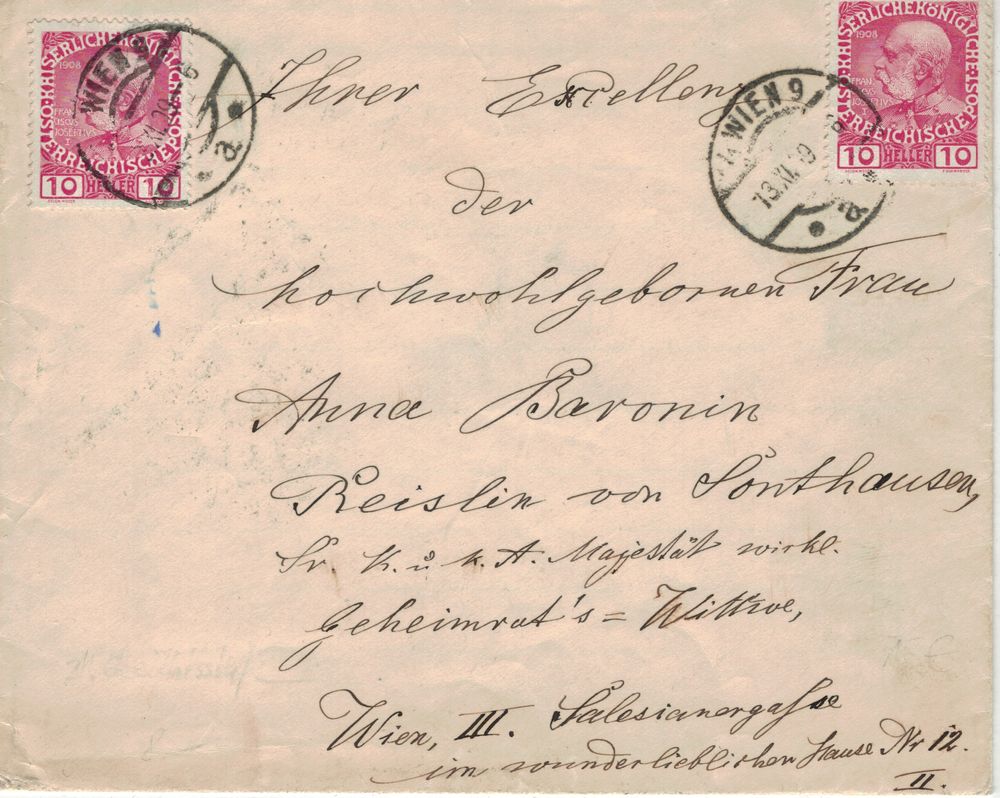 KAISERLICHE KÖNIGLICHE ÖSTERREICHISCHE POST
1908
FRAN
CISCVS
IOSEPHVS
I
10 HELLER 10
WIEN 9
a
KAISERLICHE KÖNIGLICHE ÖSTERREICHISCHE POST
1908
FRAN
CISCVS
IOSEPHVS
I
10 HELLER 10
WIEN 9
13.XI.09
a
Ihrer Excellenz
der
hochwohlgebornen Frau
Anna Baronin
Reislin von Sonthausen,
Sr. K. u. k. A. Majestät wirkl.
Geheimrat's = Wittwe,
Wien, III. Salesianergasse
im wunderlieblichen Hause Nr 12.
II.